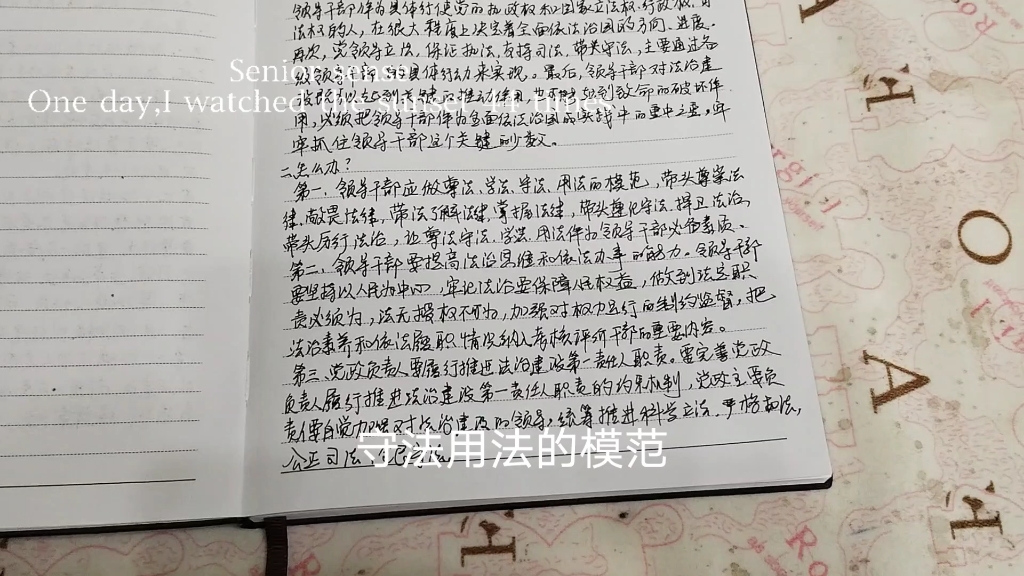 领导干部作为具体行使党的执政权和国家立法权、行政权、司
法权的人，在很大程度上决定着全面依法治国的方向、进度。
再次，党领导立法、保证执法、支持司法、带头守法，主要通过各
级领导干部的具体行动来实现。最后，领导干部对法治建
设既可以起到关键的推动作用，也可能起到致命的破坏作
用，必须把领导干部作为全面依法治国的实践中的重中之重，牢
牢抓住领导干部这个关键的少数。
二、怎么办？
第一、领导干部应做尊法、学法、守法、用法的模范，带头尊崇法
律、敬畏法律，带头了解法律、掌握法律，带头遵纪守法、捍卫法治，
带头厉行法治，让尊法守法、学法、用法作为领导干部必备素质。
第二、领导干部要提高法治思维和依法办事的能力。领导干部
要坚持以人民为中心，牢记法治要保障人民权益，做到法定职
责必须为，法无授权不可为，加强对权力运行的制约监督，把
法治素养和依法履职情况纳入考核评价干部的重要内容。
第三、党政负责人要履行推进法治建设第一责任人职责。要完善党政
负责人履行推进法治建设第一责任人职责的约束机制，党政主要负
责任要自觉加强对法治建设的领导，统筹推进科学立法、严格执法，
公正司法、全民守法。
Senior sense
One day,I watched the sunset 44 times
守法用法的模范
H
O
A
H
H